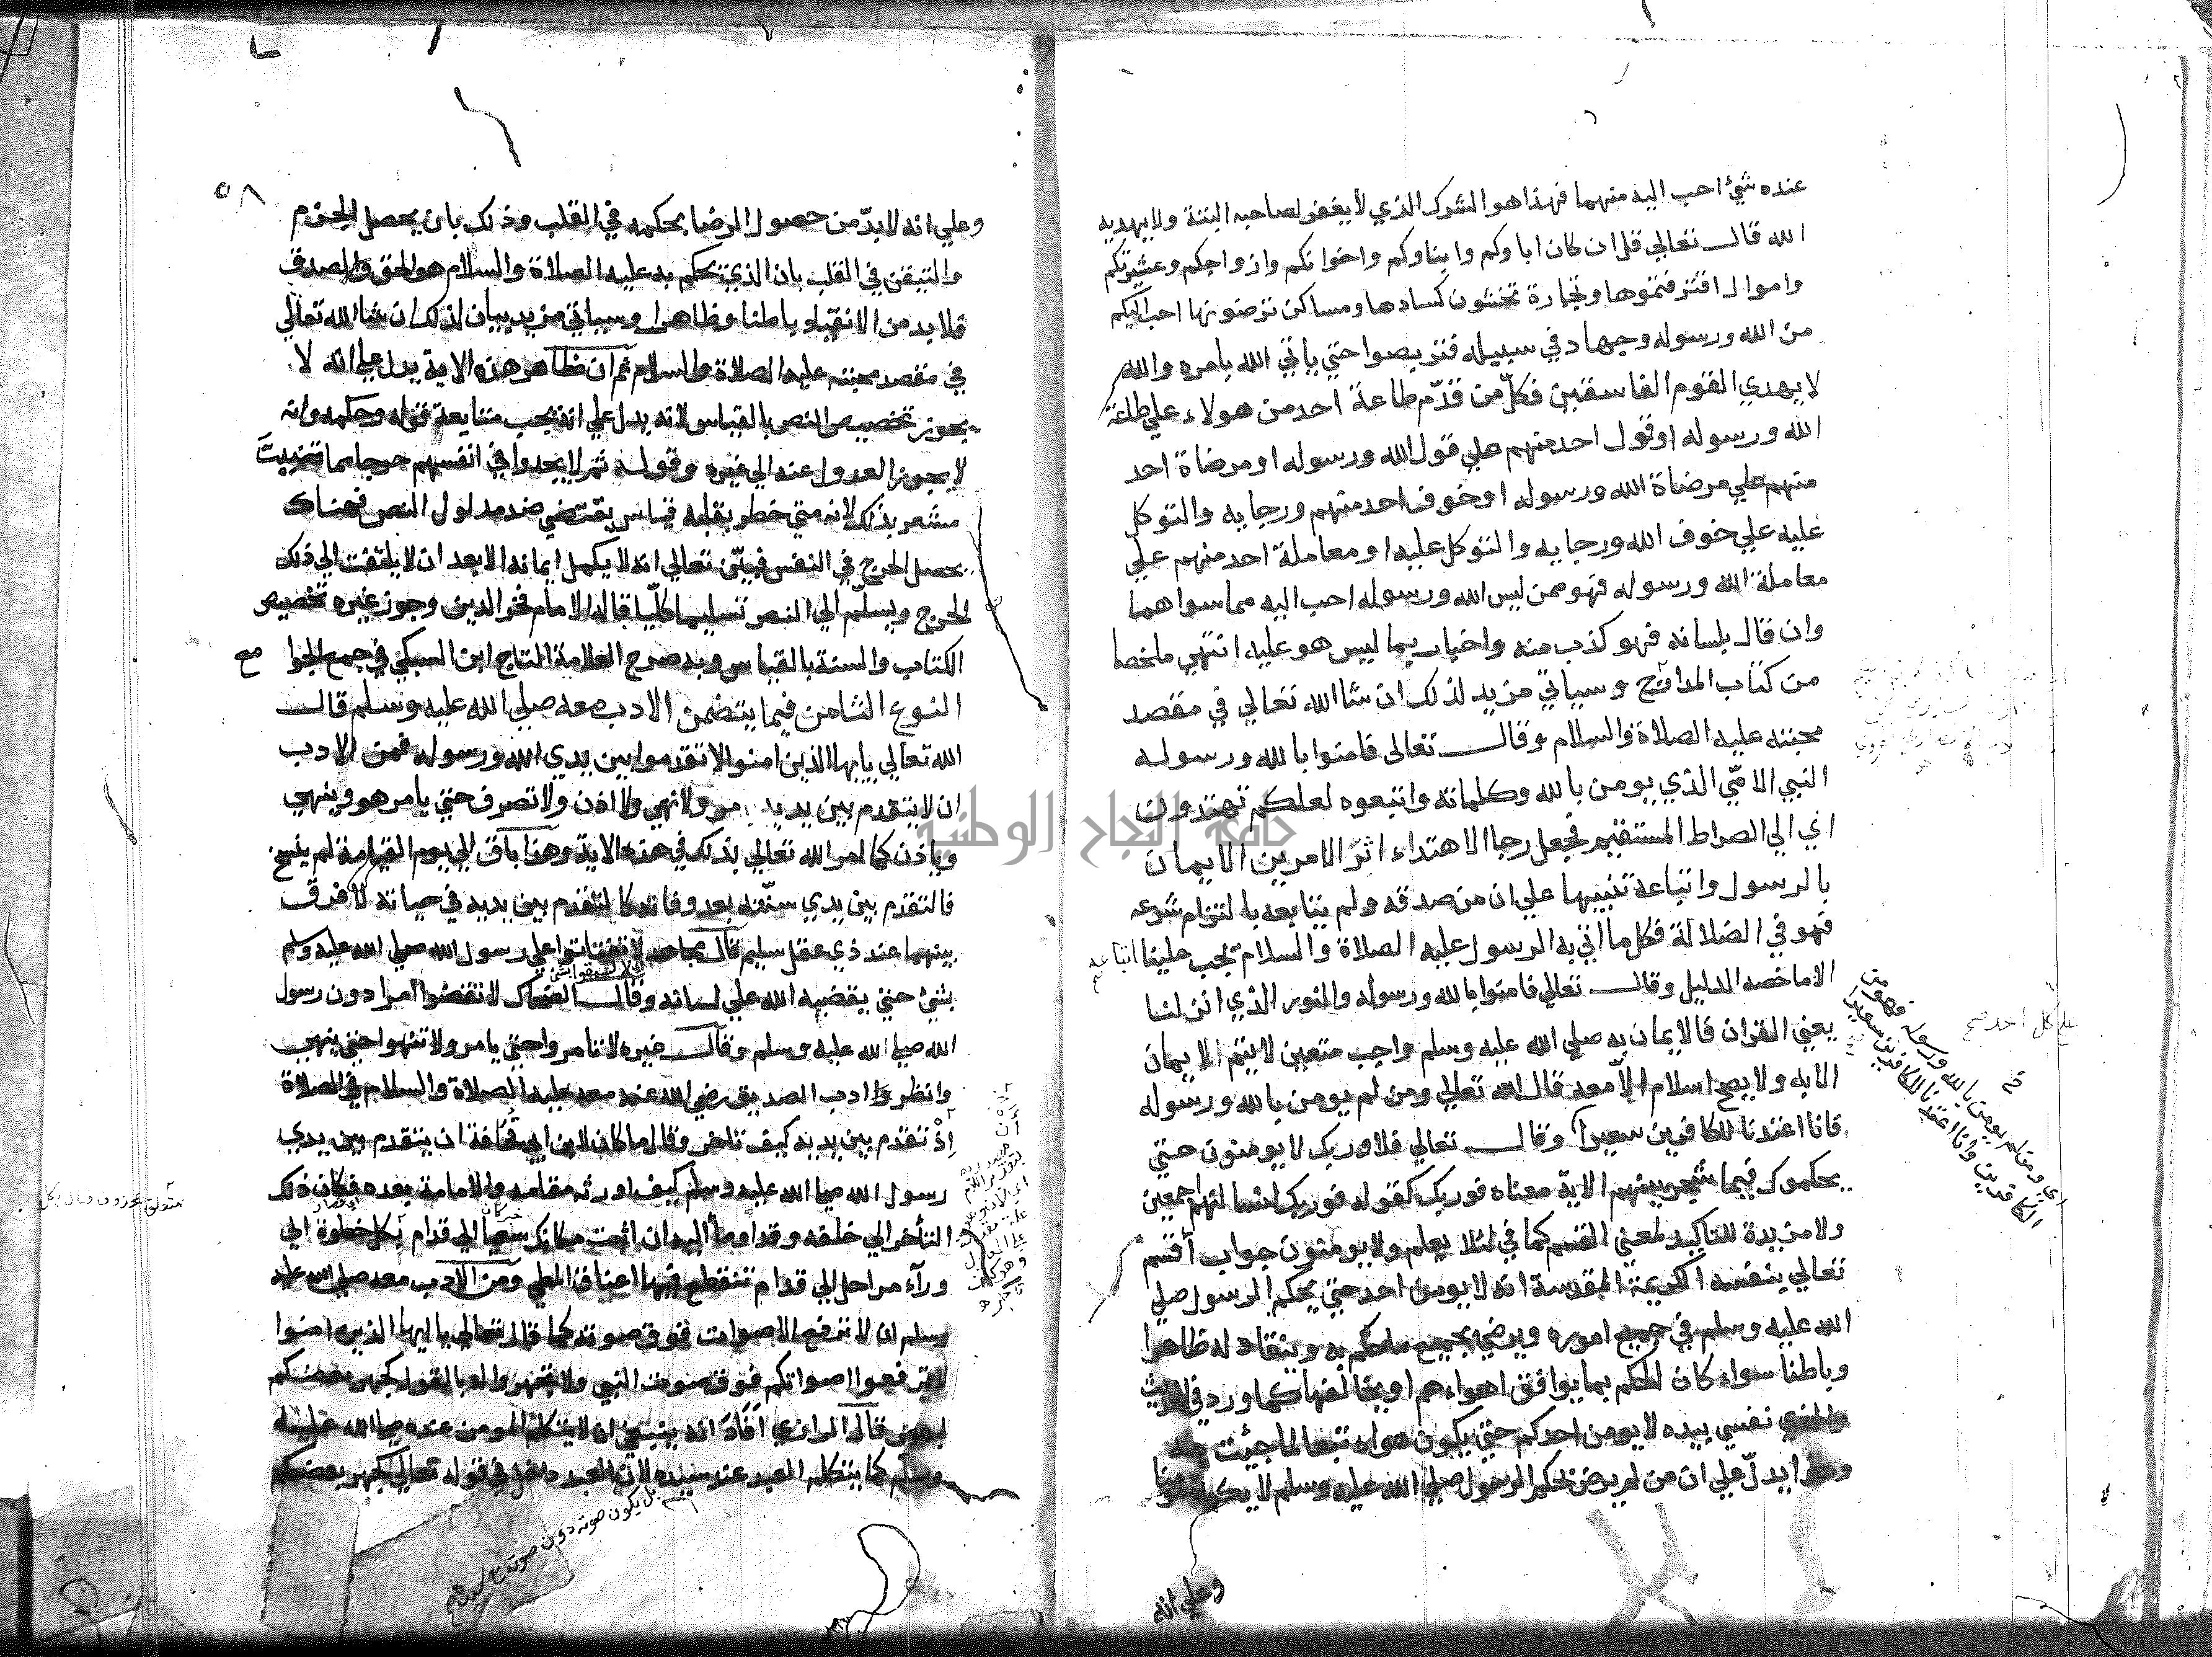 عنده شئ احب اليه منهما فهذا هو الشرك الذي لا يغفر لصاحبه البتة ولا يهديه
الله قال تعالي قل ان كان اباوكم وابناوكم واخوانكم وازواجكم وعشيرتكم
واموال اقترفتموها وتجارة تخشون كسادها ومساكن ترضونها احب اليكم
من الله ورسوله وجهاد في سبيله فتربصوا حتي ياتي الله بامره والله
لا يهدي القوم الفاسقين فكلّ من قدّم طاعة احد من هولاء علي طاعة
الله ورسوله او قول احد منهم علي قول الله ورسوله او مرضاة احد
منهم علي مرضاة الله ورسوله او خوف احد منهم ورجايه والتوكل
عليه علي خوف الله ورجايه والتوكل عليه او معاملة احد منهم علي
معاملة الله ورسوله فهو ممن ليس الله ورسوله احب اليه مما سواهما
وان قال بلسانه فهو كذب منه واخبار بما ليس هو عليه انتهي ملخصا
من كتاب المدارج وسياتي مزيد لذلك ان شا الله تعالي في مقصد
محبته عليه الصلاة والسلام وقال تعالى فامنوا بالله ورسوله
النبي الامّي الذي يومن بالله وكلماته واتبعوه لعلكم تهتدون
اي الي الصراط المستقيم فجعل رجا الاهتداء اثر الامرين الايمان
بالرسول واتباعه تنبيها علي ان من صدقه ولم يتابعه بالتزام شرعه
فهو في الضلالة فكل ما اتي به الرسول عليه الصلاة والسلام يجب علينا اتباعه
الا ما خصه الدليل وقال تعالي فامنوا بالله ورسوله والنور الذي انزلنا
يعني القران فالايمان به صلي الله عليه وسلم واجب متعين لا يتم الايمان
الا به ولا يصح اسلام الاّ معه قال الله تعالي ومن لم يومن بالله ورسوله
فانا اعتدنا للكافرين سعيرا وقال تعالي فلا وربك لا يومنون حتي
يحكموك فيما شجر بينهم الاية معناه فوربك كقوله فوربك لنسالنهم اجمعين
ولا مزيدة للتاكيد لمعني القسم كما في لئلا يعلم ولا يومنون جواب أقسم
تعالي بنفسه الكريمة المقدسة انه لا يومن احد حتي يحكم الرسول صلي
الله عليه وسلم في جميع اموره ويرضي بجميع ما حكم به وينقاد له ظاهرا
وباطنا سواء كان الحكم بما يوافق اهواءهم او يخالفها كما ورد في الحديث
والذي نفسي بيده لا يومن احدكم حتي يكون هواه تبعا لما جيئت به
وهذا يدلّ علي ان من لم يرض بحكم الرسول صلي الله عليه وسلم لا يكون مومنا
وعلي انه
علي كل احد صح
٥٨
وعلي انه لا بدّ من حصول الرضا بحكمه في القلب وذلك بان يحصل الجزم
والتيقن في القلب بان الذي يحكم به عليه الصلاة والسلام هو الحق والصدق
فلا بد من الانقياد باطنا وظاهرا وسياتي مزيد بيان لذلك ان شا الله تعالي
في مقصد محبته عليه الصلاة والسلام ثم ان ظاهر هذه الاية يدل علي انه لا
يجوز تخصيص النص بالقياس لانه يدل علي انه يجب متابعة قوله وحكمه وانه
لا يجوز العدول عنه الي غيره وقوله ثم لا يجدوا في انفسهم حرجا مما قضيت
مشعر بذلك لانه متي خطر بقلبه قياس يقتضي ضد مدلول النص فهناك
يحصل الحرج في النفس فبيّن تعالي انه لا يكمل ايمانه الا بعد ان لا يلتفت الي ذلك
الحرج ويسلّم الي النص تسليما كلّيا قاله الامام فخر الدين وجوز غيره تخصيص
الكتاب والسنة بالقياس وبه صرح العلامة التاج ابن السبكي في جمع الجوا مع
النوع الثامن فيما يتضمن الادب معه صلي الله عليه وسلم قال
الله تعالي يايها الذين امنوا لا تقدموا بين يدي الله ورسوله فمن الادب
ان لا يتقدم بين يديه ولا نهي ولا اذن ولا تصرف حتي يامر هو وينهي
وياذن كما امر الله تعالي بذلك في هذه الاية وهذا باق الي يوم القيامة لم ينسخ
فالتقدم بين يدي سنّته بعد وفاته كالتقدم بين يديه في حياته لا فرق
بينهما عند ذي عقل سليم قال مجاهد لا تفتاتوا علي رسول الله صلي الله عليه وسلم
اي لا تسبقوا بشئ
بشئ حتي يقضيه الله علي لسانه وقال الضحاك لا تقضوا امرا دون رسول
الله صلي الله عليه وسلم وقال غيره لا تامروا حتي يامر ولا تنهوا حتي ينهي
وانظر ادب الصديق رضي الله عنه معه عليه الصلاة والسلام في الصلاة
إذ تقدم بين يديه كيف تاخر وقال ما كان لابن ابي قحافة ان يتقدم بين يدي
رسول الله صلي الله عليه وسلم كيف اورثه مقامه والامامة بعده فكان ذلك
التأخر الي خلفه وقد اومأ اليه ان اثبت مكانك سعيا الي قدام بكل خطوة الي
ورآء مراحل الي قدام تنقطع فيها اعناق المطي ومن الادب معه صلي الله عليه
وسلم ان لا ترفع الاصوات فوق صوته كما قال تعالي يا ايها الذين امنوا
لا ترفعوا اصواتكم فوق صوت النبي ولا تجهروا له بالقول كجهر بعضكم
لبعض قال الرازي افاد انه ينبغي ان لا يتكلم المومن عنده صلي الله عليه
وسلم كما يتكلم العبد عند سيده لان العبد داخل في قوله تعالي كجهر بعضكم
بل يكون صوته دون صوته
جامعة النجاح الوطنية